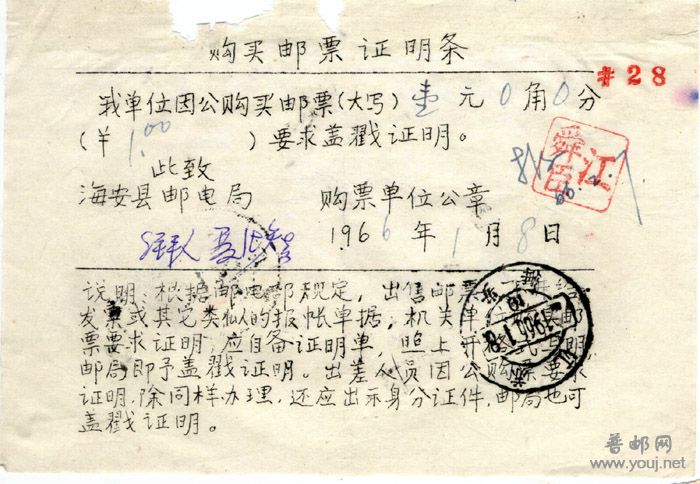 购买邮票证明条
#28
我单位因公购买邮票(大写)壹元0角0分
(￥1.00 )要求盖戳证明。
此致
海安县邮电局 购票单位公章
舜江臣
66.2.7.
1966年1月8日
说明：根据邮电部规定，出售邮票
发票或其它类似的报帐单据，机关单
票要求证明，应自备证明单，照上开
邮局即予盖戳证明。出差人员因公购票要求
证明，除同样办理，还应出示身分证件，邮局也可
盖戳证明。
1966.1.8
普邮网
www.youj.net